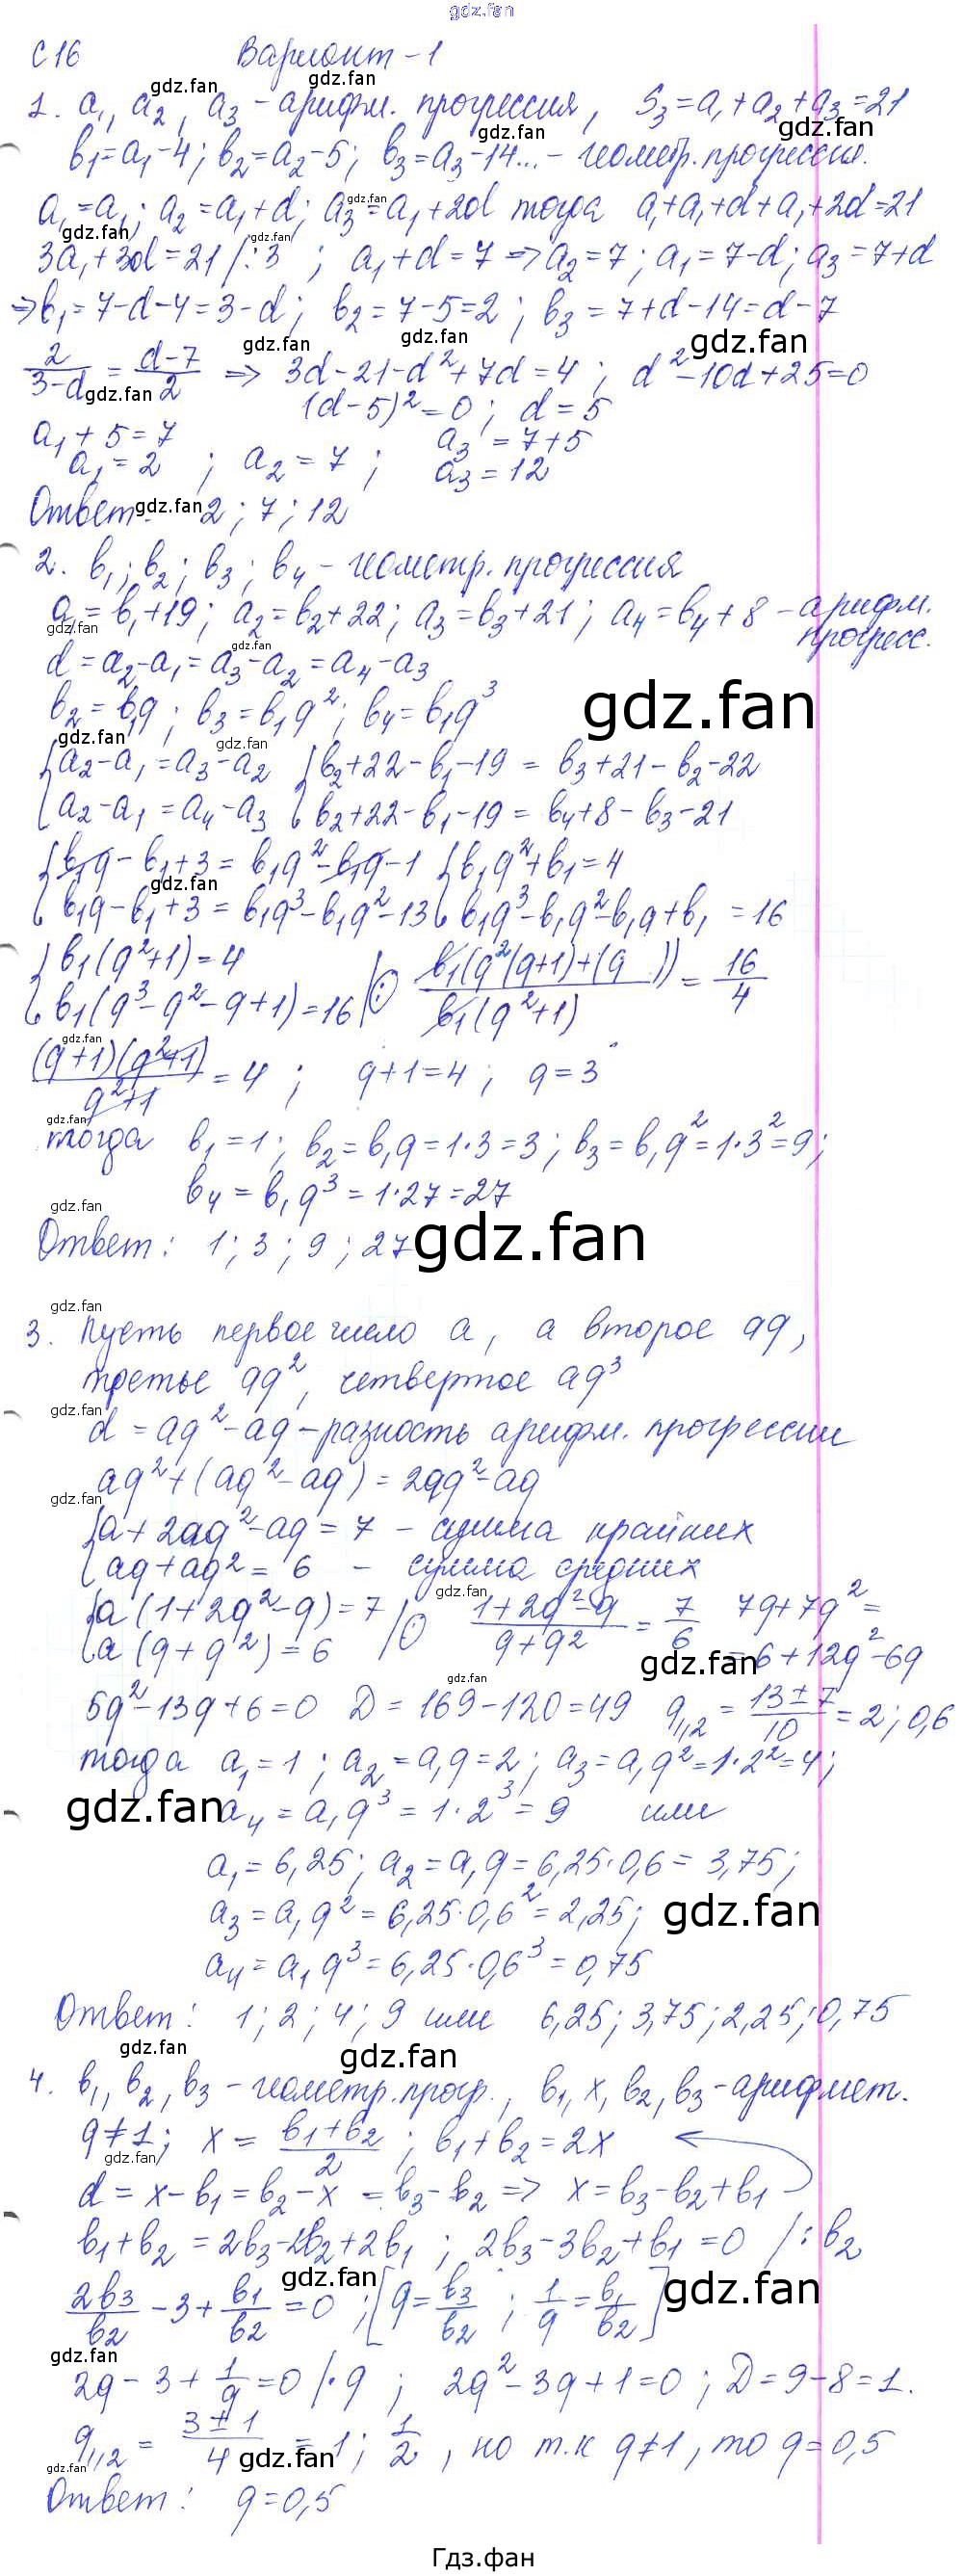 gdz.fan
С 16 Вариант-1
1. a₁, a₂, a₃ - арифм. прогрессия, S₃=a₁+a₂+a₃=21
b₁=a₁-4; b₂=a₂-5; b₃=a₃-14...- геометр. прогрессия.
a₁=a₁; a₂=a₁+d; a₃=a₁+2d тогда a₁+a₁+d+a₁+2d=21
3a₁+3d=21 /:3 ; a₁+d=7 => a₂=7; a₁=7-d; a₃=7+d
=> b₁=7-d-4=3-d; b₂=7-5=2; b₃=7+d-14=d-7
2/(3-d) = (d-7)/2 => 3d-21-d²+7d=4; d²-10d+25=0
(d-5)²=0; d=5
a₁+5=7 a₃=7+5
a₁=2 ; a₂=7 ; a₃=12
Ответ: 2; 7; 12
2. b₁; b₂; b₃; b₄ - геометр. прогрессия
a₁=b₁+19; a₂=b₂+22; a₃=b₃+21; a₄=b₄+8 - арифм.
прогресс.
d=a₂-a₁=a₃-a₂=a₄-a₃
b₂=b₁q; b₃=b₁q²; b₄=b₁q³
{a₂-a₁=a₃-a₂ {b₂+22-b₁-19=b₃+21-b₂-22
{a₂-a₁=a₄-a₃ {b₂+22-b₁-19=b₄+8-b₃-21
{b₁q-b₁+3=b₁q²-b₁q-1 {b₁q²+b₁=4
{b₁q-b₁+3=b₁q³-b₁q²-13 {b₁q³-b₁q²-b₁q+b₁=16
{b₁(q²+1)=4
{b₁(q³-q²-q+1)=16 | : b₁(q²(q+1)+(q ))/b₁(q²+1) = 16/4
(q+1)(q²+1)/(q²+1) = 4; q+1=4; q=3
тогда b₁=1; b₂=b₁q=1·3=3; b₃=b₁q²=1·3²=9;
b₄=b₁q³=1·27=27
Ответ: 1; 3; 9; 27
3. Пусть первое число a, а второе aq,
третье aq², четвертое aq³
d=aq²-aq - разность арифм. прогрессии
aq²+(aq²-aq)=2aq²-aq
{a+2aq²-aq=7 - сумма крайних
{aq+aq²=6 - сумма средних
{a(1+2q²-q)=7
{a(q+q²)=6 | : (1+2q²-q)/(q+q²) = 7/6 7q+7q²=
=6+12q²-6q
5q²-13q+6=0 D=169-120=49 q₁,₂=(13±7)/10=2; 0,6
тогда a₁=1; a₂=a₁q=2; a₃=a₁q²=1·2²=4;
a₄=a₁q³=1·2³=9 или
a₁=6,25; a₂=a₁q=6,25·0,6=3,75;
a₃=a₁q²=6,25·0,6²=2,25;
a₄=a₁q³=6,25·0,6³=0,75
Ответ: 1; 2; 4; 9 или 6,25; 3,75; 2,25; 0,75
4. b₁, b₂, b₃ - геометр. прогр., b₁, x, b₂, b₃ - арифмет.
q≠1; x=(b₁+b₂)/2; b₁+b₂=2x
d=x-b₁=b₂-x=b₃-b₂ => x=b₃-b₂+b₁
b₁+b₂=2b₃-2b₂+2b₁; 2b₃-3b₂+b₁=0 /:b₂
2b₃/b₂-3+b₁/b₂=0; [q=b₃/b₂; 1/q=b₁/b₂]
2q-3+1/q=0 |·q; 2q²-3q+1=0; D=9-8=1.
q₁,₂=(3±1)/4=1; 1/2, но т.к q≠1, то q=0,5
Ответ: q=0,5
Гдз.фан